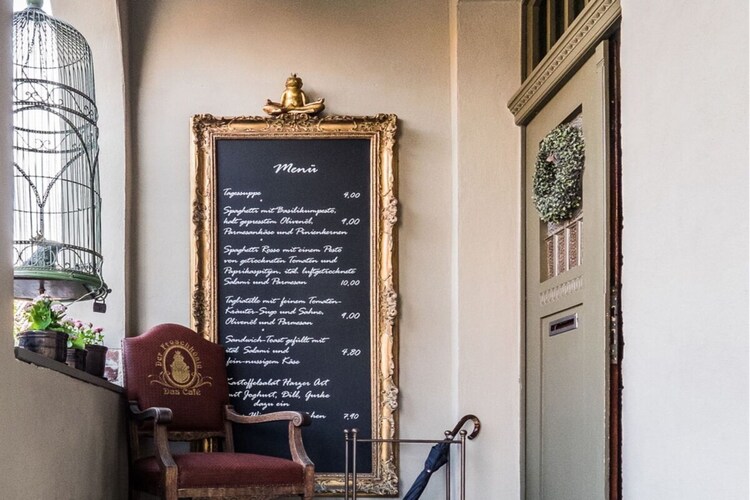 Menü
Tagessuppe 4,00
Spaghetti mit Basilikumpesto,
kalt gepresstem Olivenöl, 9,00
Parmesankäse und Pinienkernen
Spaghetti Rosso mit einem Pesto
von getrockneten Tomaten und
Paprikaspitzen, ital. luftgetrocknete
Salami und Parmesan 10,00
Tagliatelle mit feinem Tomaten-
Kräuter-Sugo und Sahne, 9,00
Olivenöl und Parmesan
Sandwich-Toast gefüllt mit
ital. Salami und 4,80
fein-nussigem Käse
Kartoffelsalat Harzer Art
mit Joghurt, Dill, Gurke
dazu ein
7,90
Der Froschkönig
Das Café